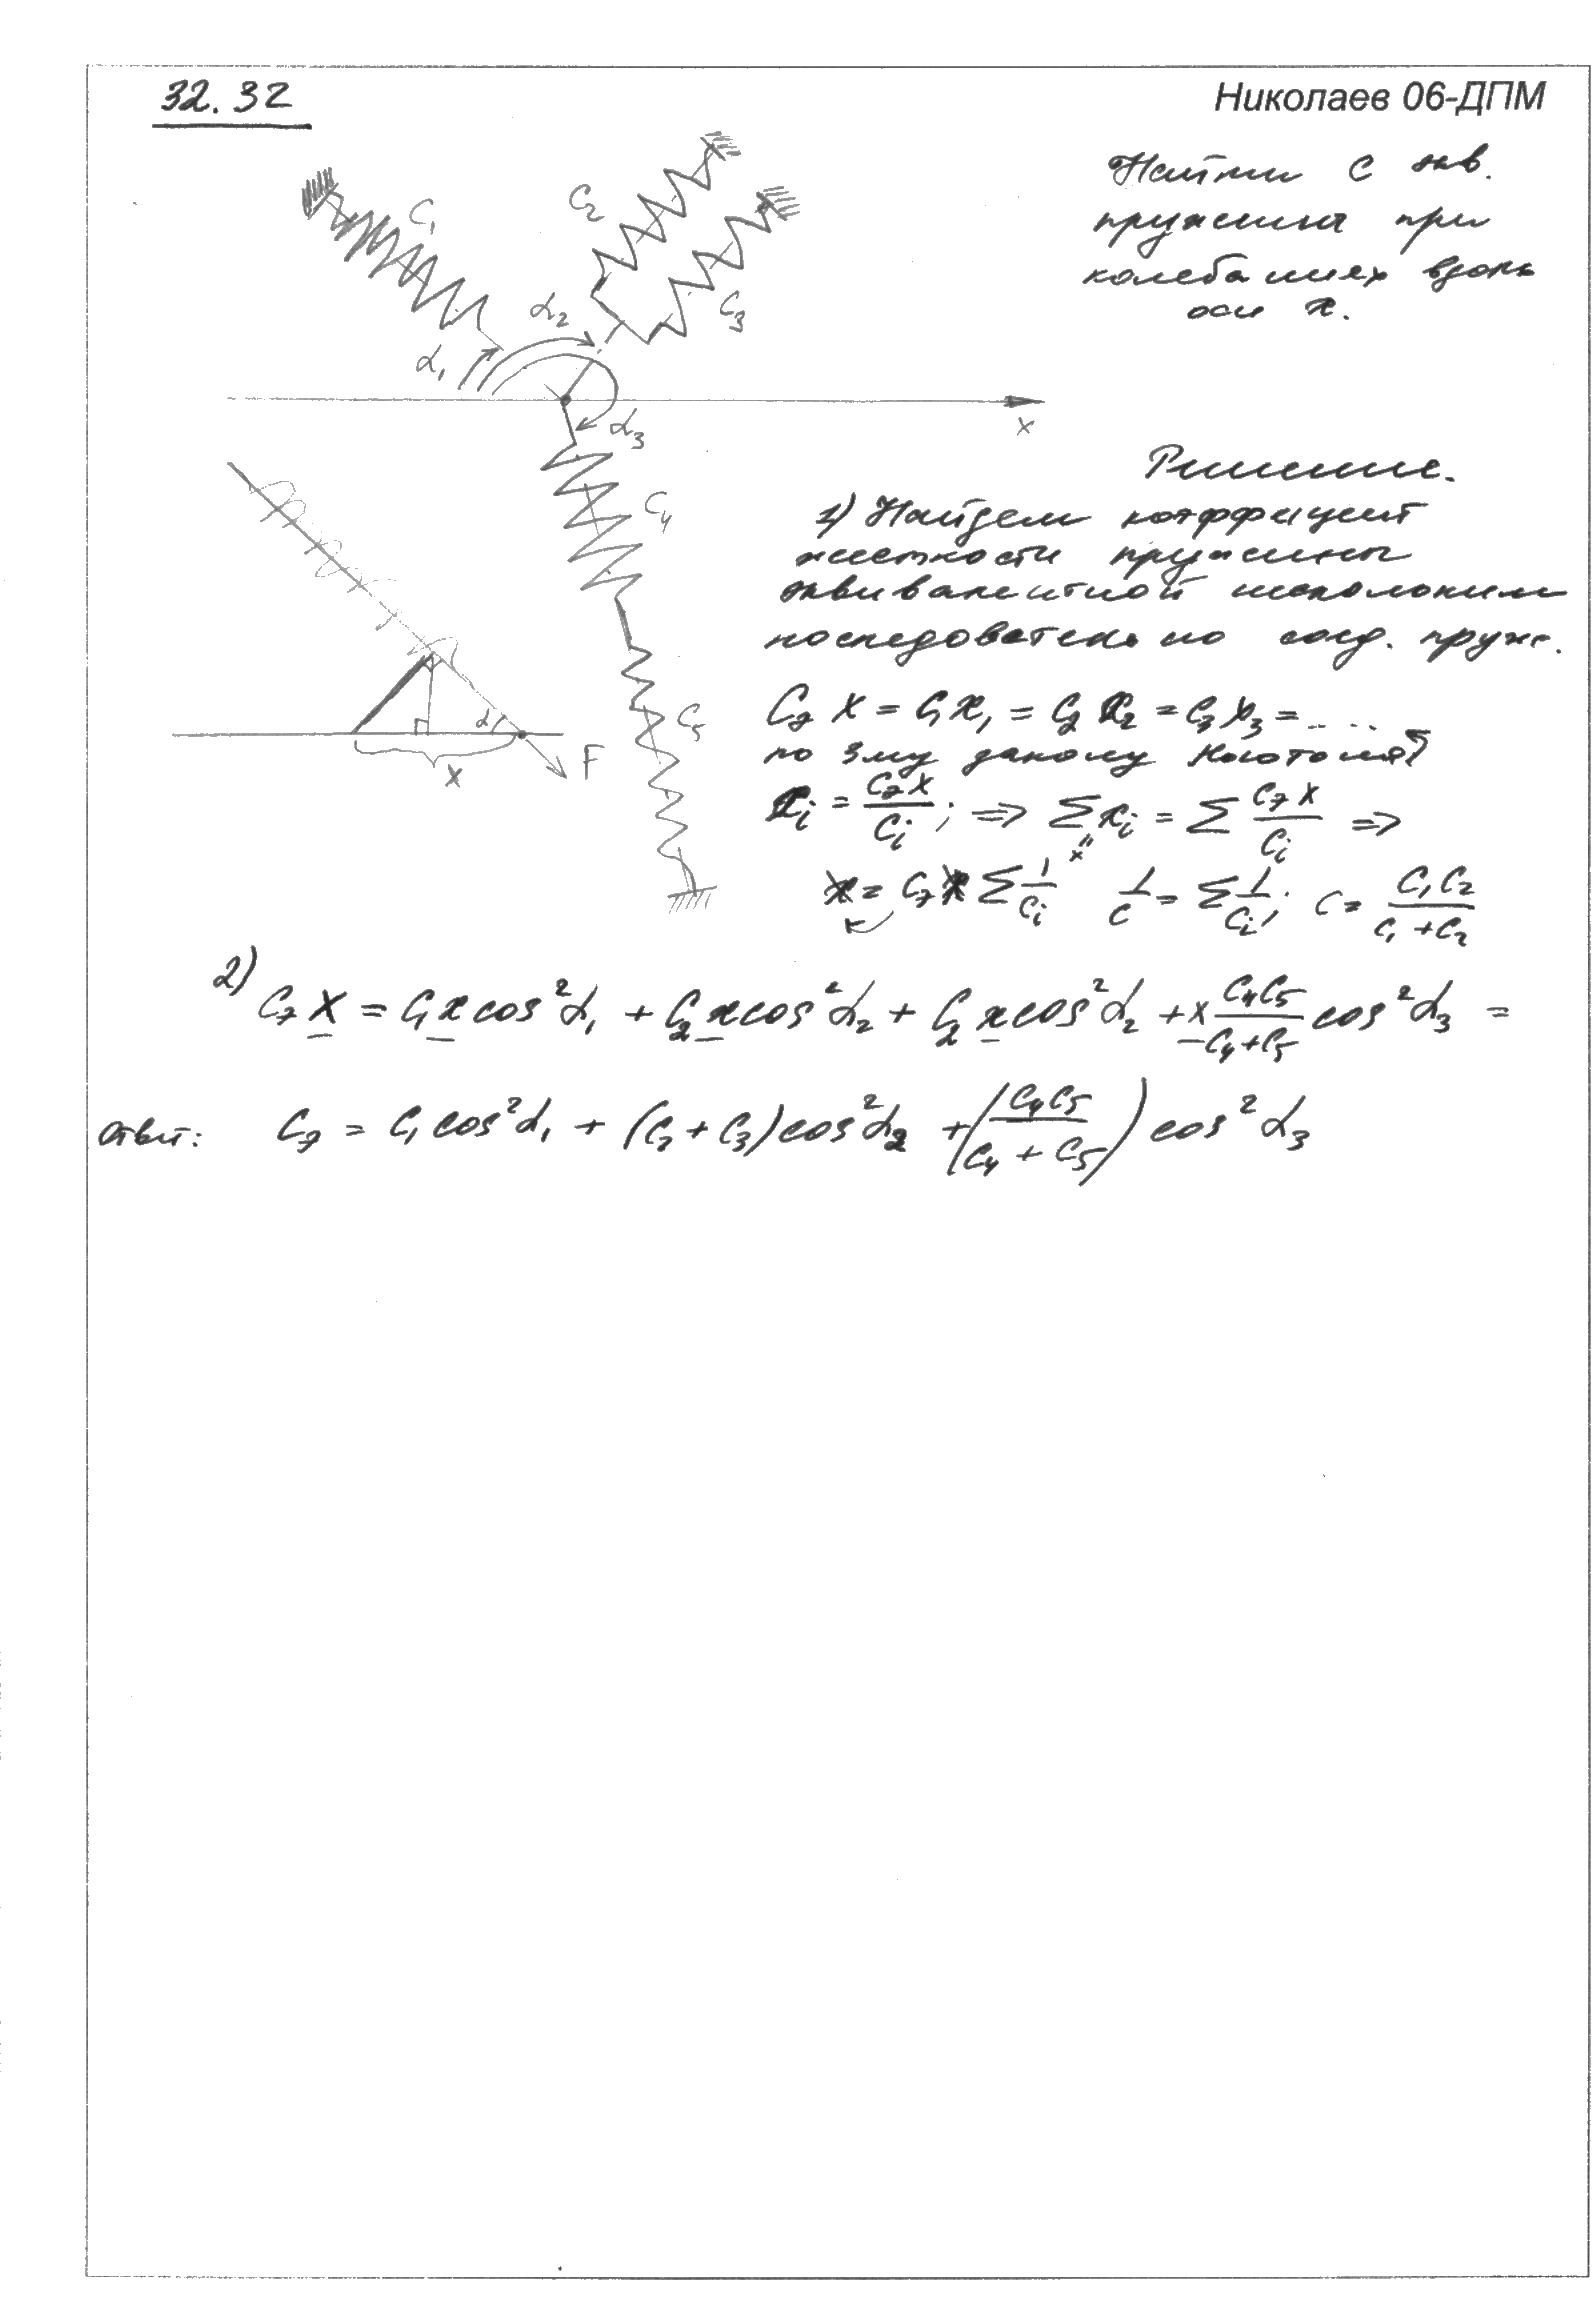 32.32
Николаев 06-ДПМ
Найти C экв.
пружины при
колебаниях вдоль
оси x.
C₁
C₂
C₃
α₁
α₂
α₃
x
C₄
C₅
α
F
x
Решение.
1) Найдем коэффициент
жесткости пружины
эквивалентной нескольким
последовательно соед. пруж.
Cэ x = C₁x₁ = C₂x₂ = C₃x₃ = ....
по 3му закону Ньютона
xᵢ = Cэ x / Cᵢ ; => ∑xᵢ = ∑ Cэ x / Cᵢ =>
x
x = Cэ x ∑ 1/Cᵢ 1/C = ∑ 1/Cᵢ ; C = C₁C₂ / C₁+C₂
2) Cэ x = C₁ x cos²α₁ + C₂ x cos²α₂ + C₂ x cos²α₂ + x C₄C₅ / C₄+C₅ cos²α₃ =
ответ: Cэ = C₁ cos²α₁ + (C₂ + C₃) cos²α₂ + (C₄C₅ / C₄ + C₅) cos²α₃